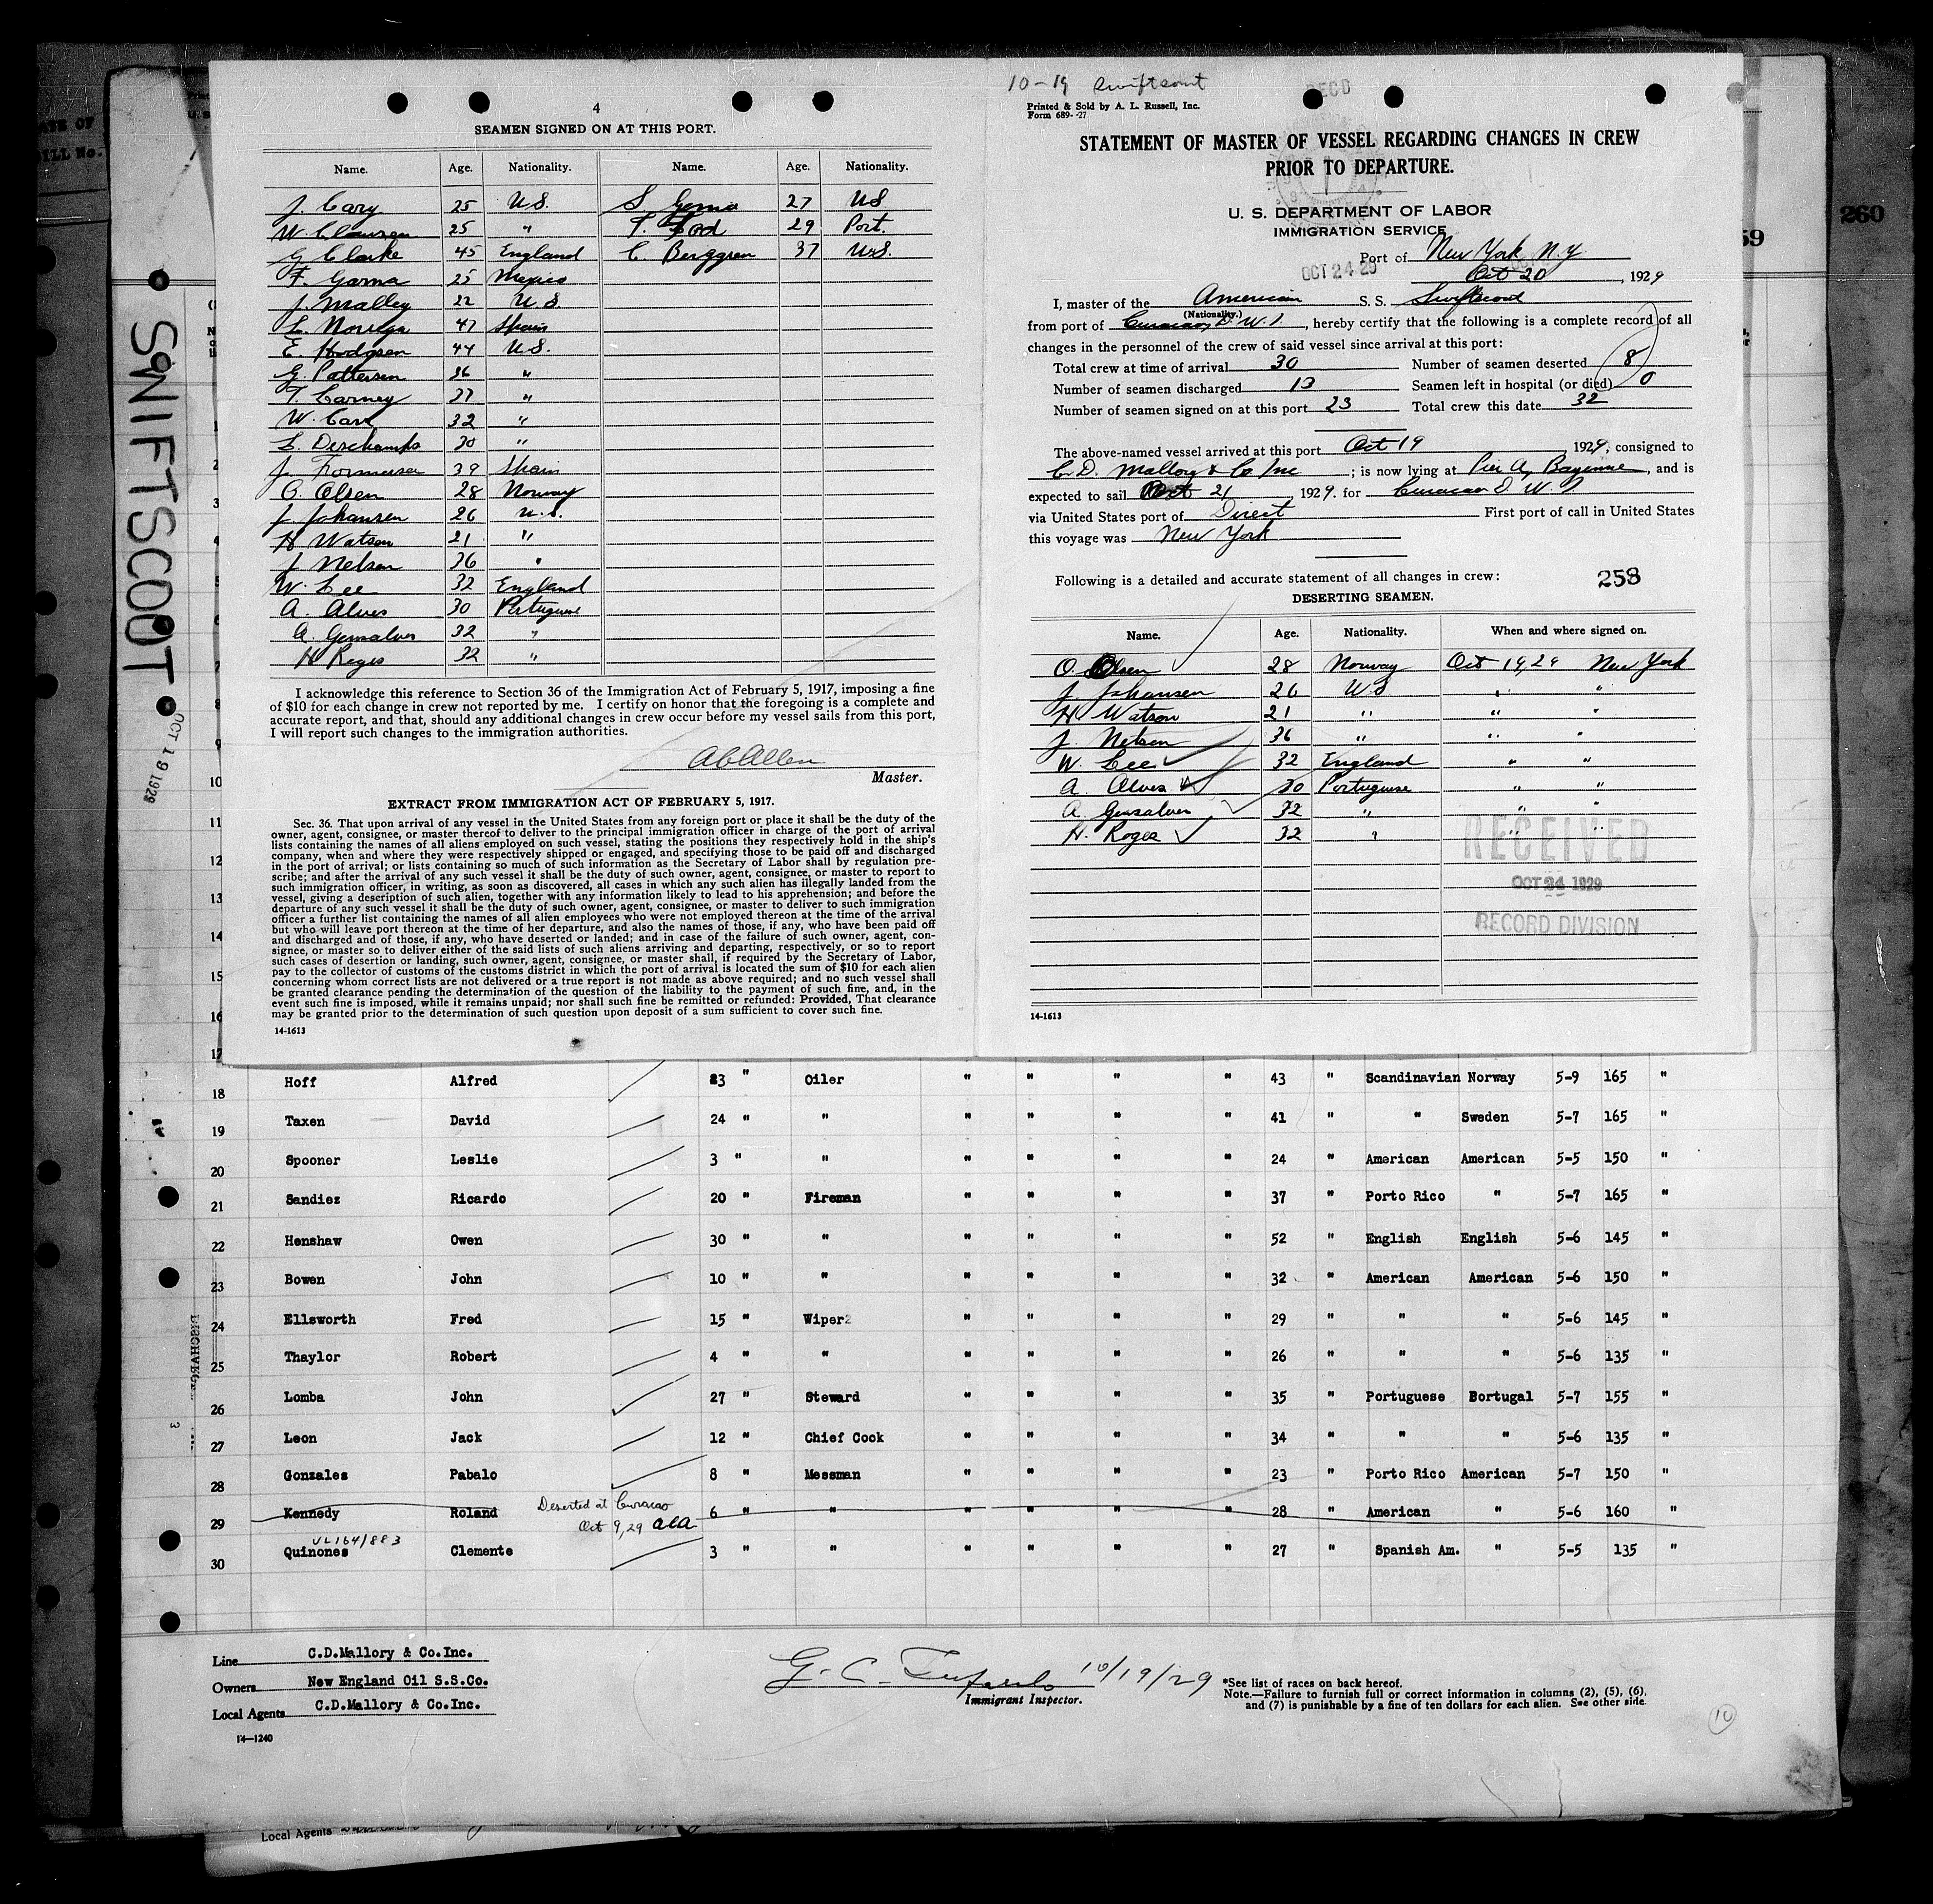 4
SEAMEN SIGNED ON AT THIS PORT.
Name. Age. Nationality. Name. Age. Nationality.
J. Cary 25 U.S. S. 27 US
W. Clausen 25 " T. 29 Port.
G Clarke 45 England C. Berggren 37 U.S.
F. Garma 25 Mexico
J. Malley 22 U.S
L. Noriega 47 Spain
E. Hodgson 44 U.S.
G. Patterson 36 "
T. Carney 27 "
W. Carr 32 "
L. Deschamps 30 "
J. 39 Spain
O. Olsen 28 Norway
J. Johansen 26 U.S.
H Watson 21 "
J Nelson 36 "
W. Lee 32 England
A. Alves 30 Portuguese
A. Gonsalves 32 "
H Roges 32 "
I acknowledge this reference to Section 36 of the Immigration Act of February 5, 1917, imposing a fine
of $10 for each change in crew not reported by me. I certify on honor that the foregoing is a complete and
accurate report, and that, should any additional changes in crew occur before my vessel sails from this port,
I will report such changes to the immigration authorities.
A C Allen
Master.
EXTRACT FROM IMMIGRATION ACT OF FEBRUARY 5, 1917.
Sec. 36. That upon arrival of any vessel in the United States from any foreign port or place it shall be the duty of the
owner, agent, consignee, or master thereof to deliver to the principal immigration officer in charge of the port of arrival
lists containing the names of all aliens employed on such vessel, stating the positions they respectively hold in the ship's
company, when and where they were respectively shipped or engaged, and specifying those to be paid off and discharged
in the port of arrival; or lists containing so much of such information as the Secretary of Labor shall by regulation pre-
scribe; and after the arrival of any such vessel it shall be the duty of such owner, agent, consignee, or master to report to
such immigration officer, in writing, as soon as discovered, all cases in which any such alien has illegally landed from the
vessel, giving a description of such alien, together with any information likely to lead to his apprehension; and before the
departure of any such vessel it shall be the duty of such owner, agent, consignee, or master to deliver to such immigration
officer a further list containing the names of all alien employees who were not employed thereon at the time of the arrival
but who will leave port thereon at the time of her departure, and also the names of those, if any, who have been paid off
and discharged and of those, if any, who have deserted or landed; and in case of the failure of such owner, agent, con-
signee, or master so to deliver either of the said lists of such aliens arriving and departing, respectively, or so to report
such cases of desertion or landing, such owner, agent, consignee, or master shall, if required by the Secretary of Labor,
pay to the collector of customs of the customs district in which the port of arrival is located the sum of $10 for each alien
concerning whom correct lists are not delivered or a true report is not made as above required; and no such vessel shall
be granted clearance pending the determination of the question of the liability to the payment of such fine, and, in the
event such fine is imposed, while it remains unpaid; nor shall such fine be remitted or refunded: Provided, That clearance
may be granted prior to the determination of such question upon deposit of a sum sufficient to cover such fine.
14-1613
10-19 Swiftscout
REC'D
Printed & Sold by A. L. Russell, Inc.
Form 689--27
STATEMENT OF MASTER OF VESSEL REGARDING CHANGES IN CREW
PRIOR TO DEPARTURE.
U. S. DEPARTMENT OF LABOR
IMMIGRATION SERVICE
Port of New York, N.Y
OCT 24 29
Oct 20, 1929
I, master of the American S. S. Swiftscout
(Nationality.)
from port of Curacao, D.W.I., hereby certify that the following is a complete record of all
changes in the personnel of the crew of said vessel since arrival at this port:
Total crew at time of arrival 30 Number of seamen deserted 8
Number of seamen discharged 13 Seamen left in hospital (or died) 0
Number of seamen signed on at this port 23 Total crew this date 32
The above-named vessel arrived at this port Oct 19, 1929, consigned to
C.D. Mallory & Co Inc; is now lying at Pier A, Bayonne, and is
expected to sail Oct 21, 1929. for Curacao D.W.I
via United States port of Direct First port of call in United States
this voyage was New York
Following is a detailed and accurate statement of all changes in crew: 258
DESERTING SEAMEN.
Name. Age. Nationality. When and where signed on.
O. Olsen 28 Norway Oct 19,29 New York
J. Johansen 26 U.S " "
H Watson 21 " " "
J. Nelson 36 " " "
W. Lee 32 England " "
A. Alves 30 Portuguese " "
A. Gonsalves 32 " " "
H. Roges 32 " " "
RECEIVED
OCT 24 1929
RECORD DIVISION
14-1613
59
260
SWIFTSCOUT
OCT 19 1929
1
2
3
4
5
6
7
8
9
10
11
12
13
14
15
16
17
18 Hoff Alfred 23 " Oiler " " " " 43 " Scandinavian Norway 5-9 165 "
19 Taxen David 24 " " " " " " 41 " " Sweden 5-7 165 "
20 Spooner Leslie 3 " " " " " " 24 " American American 5-5 150 "
21 Sandiez Ricardo 20 " Fireman " " " " 37 " Porto Rico " 5-7 165 "
22 Henshaw Owen 30 " " " " " " 52 " English English 5-6 145 "
23 Bowen John 10 " " " " " " 32 " American American 5-6 150 "
24 Ellsworth Fred 15 " Wiper " " " " 29 " " " 5-6 145 "
25 Thaylor Robert 4 " " " " " " 26 " " " 5-6 135 "
26 Lomba John 27 " Steward " " " " 35 " Portuguese Portugal 5-7 155 "
27 Leon Jack 12 " Chief Cook " " " " 34 " " " 5-6 135 "
28 Gonzales Pabalo 8 " Messman " " " " 23 " Porto Rico American 5-7 150 "
29 Kennedy Roland Deserted at Curacao Oct 9,29 ACA 6 " " " " " " 28 " American " 5-6 160 "
VL164/883
30 Quinones Clemente 3 " " " " " " 27 " Spanish Am. " 5-5 135 "
Line C.D.Mallory & Co.Inc.
Owners New England Oil S.S.Co.
Local Agents C.D.Mallory & Co.Inc.
14—1240
G. C. 10/19/29
Immigrant Inspector.
*See list of races on back hereof.
Note.—Failure to furnish full or correct information in columns (2), (5), (6),
and (7) is punishable by a fine of ten dollars for each alien. See other side.
10
Local Agents